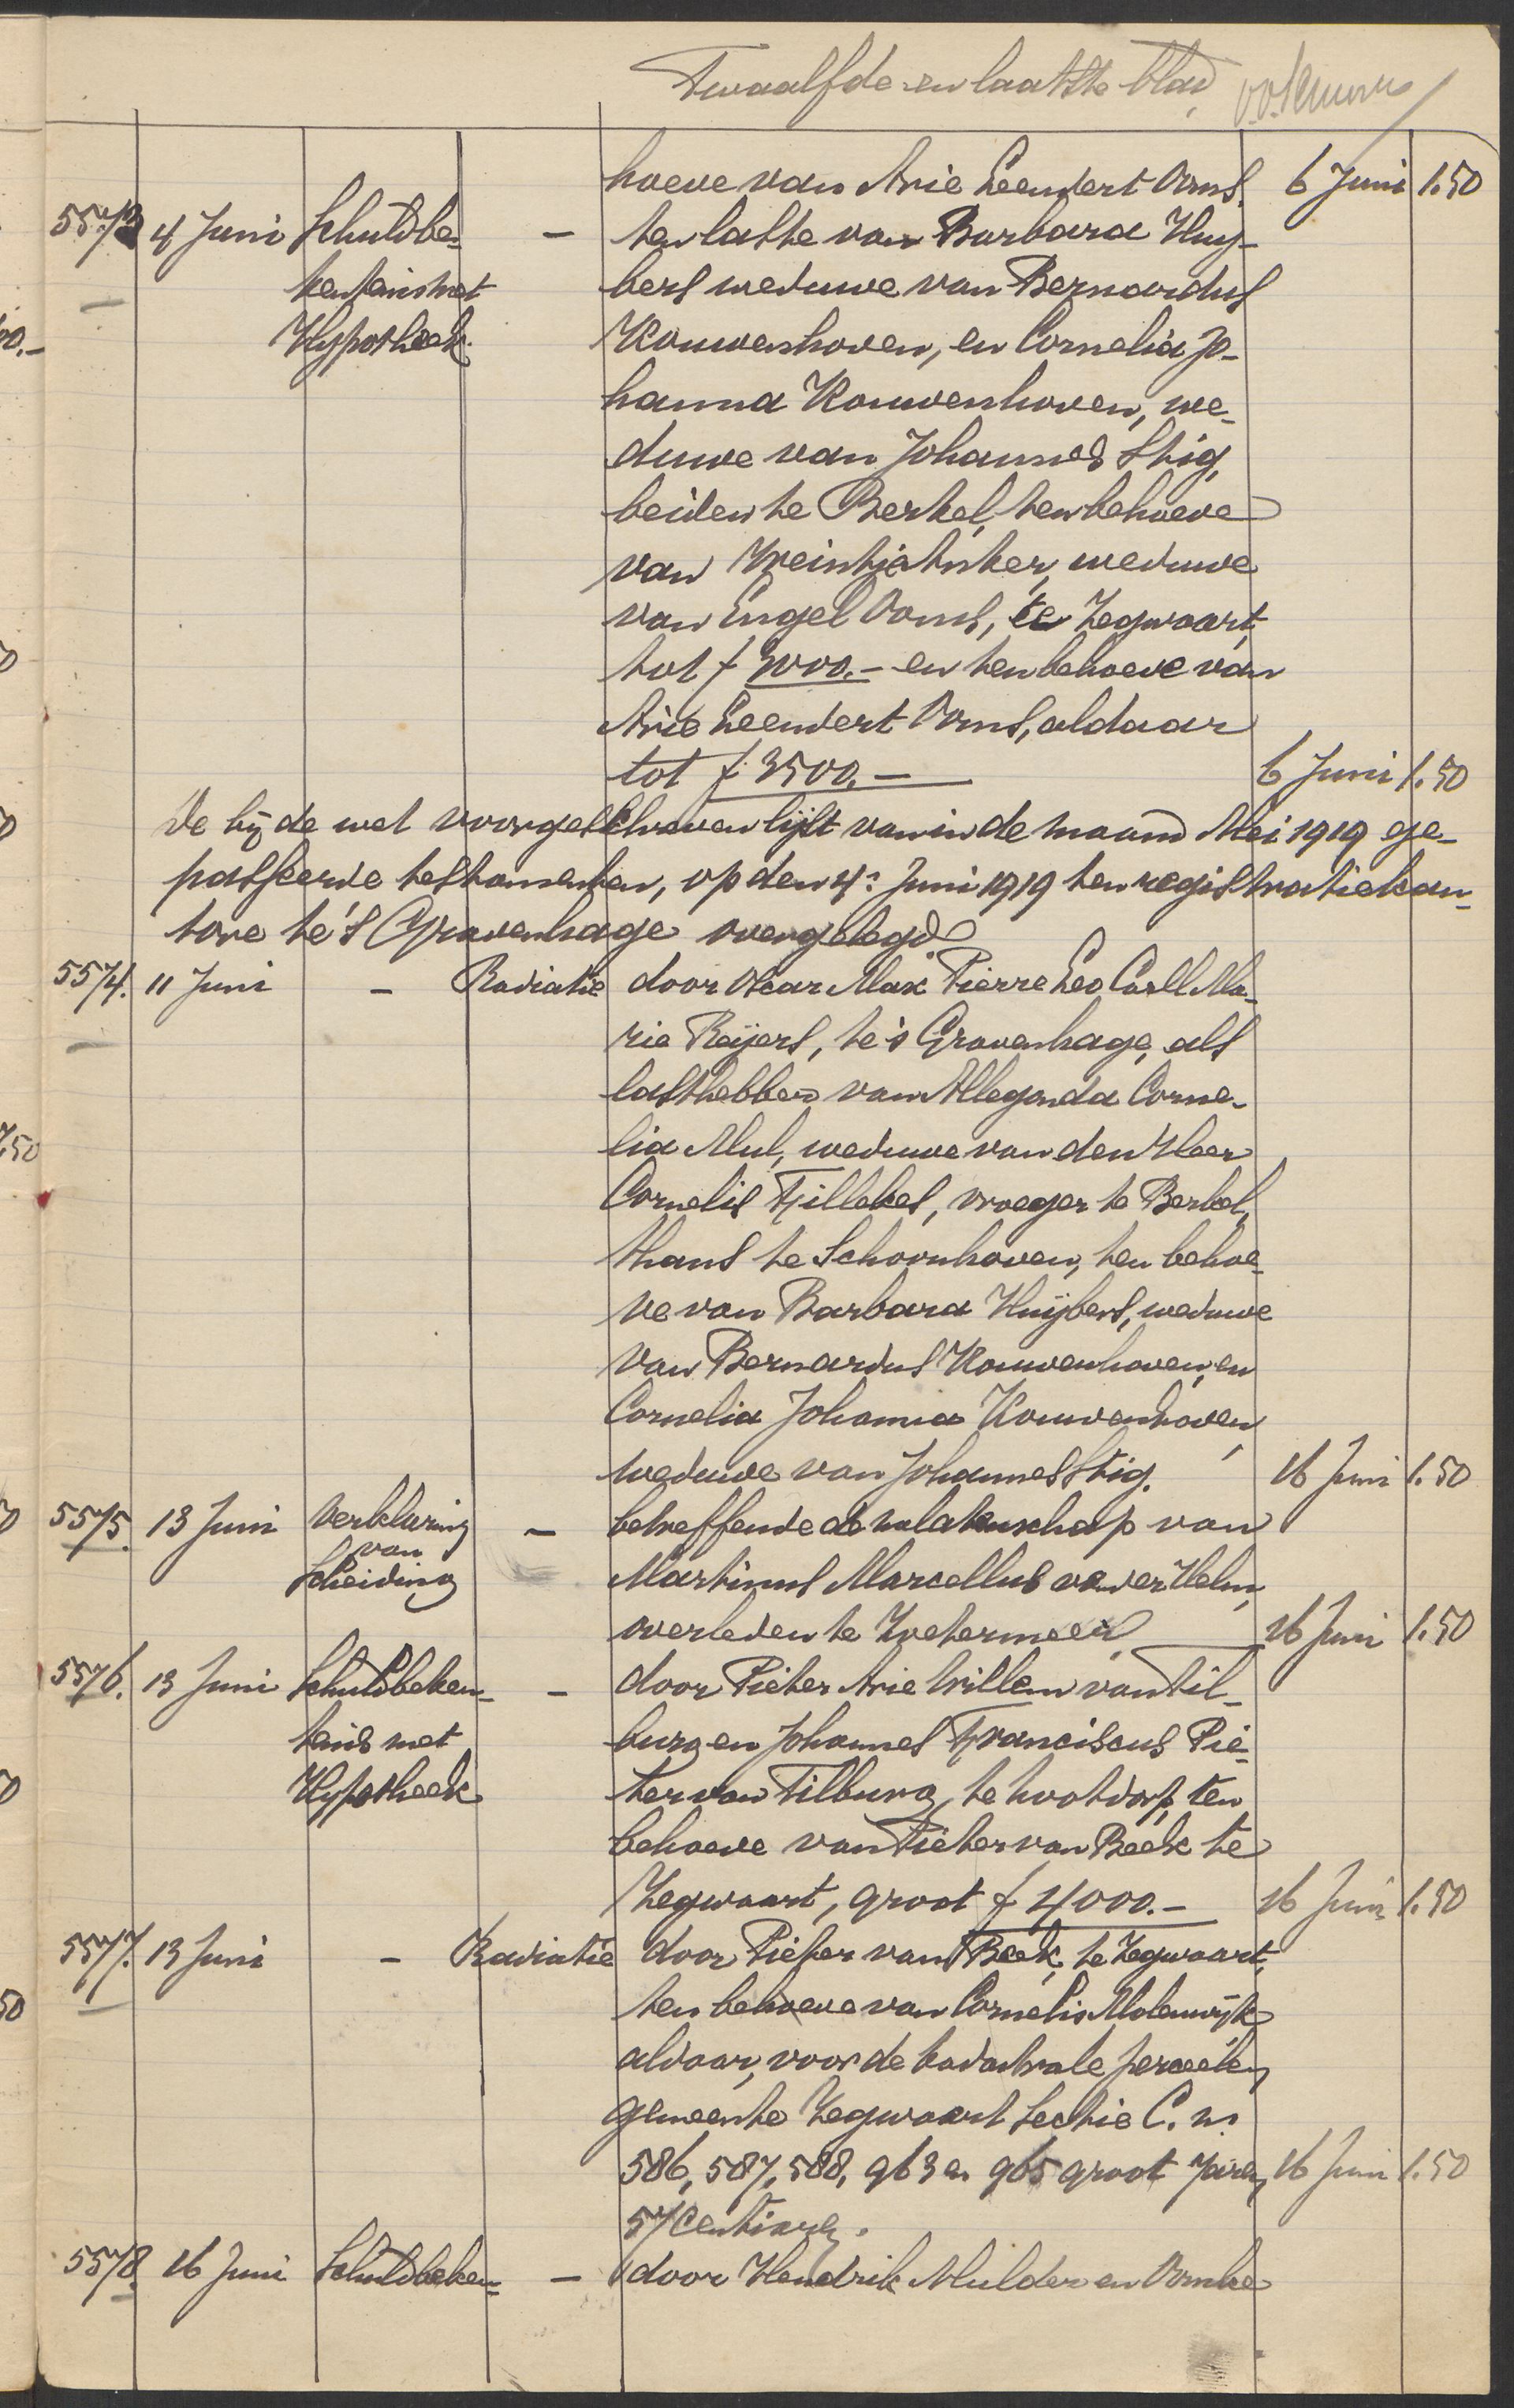 Twaalfde en laatste blad
hoeve van Arie Leendert Ooms. 6 Juni 1.50
5573 4 Juni Schuldbe- — ten laste van Barbara Huy-
kentenis met bers weduwe van Bernardus
Hypotheek. Kouwenhoven, en Cornelia Jo-
hanna Kouwenhoven, we-
duwe van Johannes Stig,
beiden te Berkel, ten behoeve
van weduwe
van Engel Ooms, te Zegwaart,
tot f 3000.- en ten behoeve van
Arie Leendert Ooms, aldaar
tot f 3500.- 6 Juni 1.50
De bij de wet voorgeschreven lijst van in de maand Mei 1919 ge-
passeerde testamenten, op den 4: Juni 1919 ten registratiekan-
tore te 's Gravenhage overgelegd
5574. 11 Juni — Radiatie door Oscar Max Pierre Leo Carll Ma-
rie Reijers, te 's Gravenhage, als
lasthebber van Allegonda Corne-
lia Mul, weduwe van den Heer
Cornelis Fillekes, vroeger te Berkel,
thans te Schoonhoven, ten behoe-
ve van Barbara Huijbers, weduwe
van Bernardus Kouwenhoven, en
Cornelia Johanna Kouwenhoven,
weduwe van Johannes Stig. 16 Juni 1.50
5575. 13 Juni Verklaring — betreffende de nalatenschap van
van
Scheiding Martinus Marcellus van der Helm,
overleden te Zoetermeer 16 Juni 1.50
5576. 13 Juni Schuldbeken- — door Pieter Arie Willem van Til-
tenis met burg en Johannes Franciscus Pie-
Hypotheek ter van Tilburg, te Nootdorp, ten
behoeve van Pieter van Beek te
Zegwaart, groot f 4000.- 16 Juni 1.50
5577. 13 Juni — Radiatie door Pieter van Beek, te Zegwaart,
ten behoeve van Cornelis Molenwijk
aldaar, voor de kadastrale perceelen
gemeente Zegwaart Sectie C. nrs
586, 587, 588, 963 en 965 groot 16 Juni 1.50
57 centiaren.
5578. 16 Juni Schuldbeken- — door Hendrik Mulder en